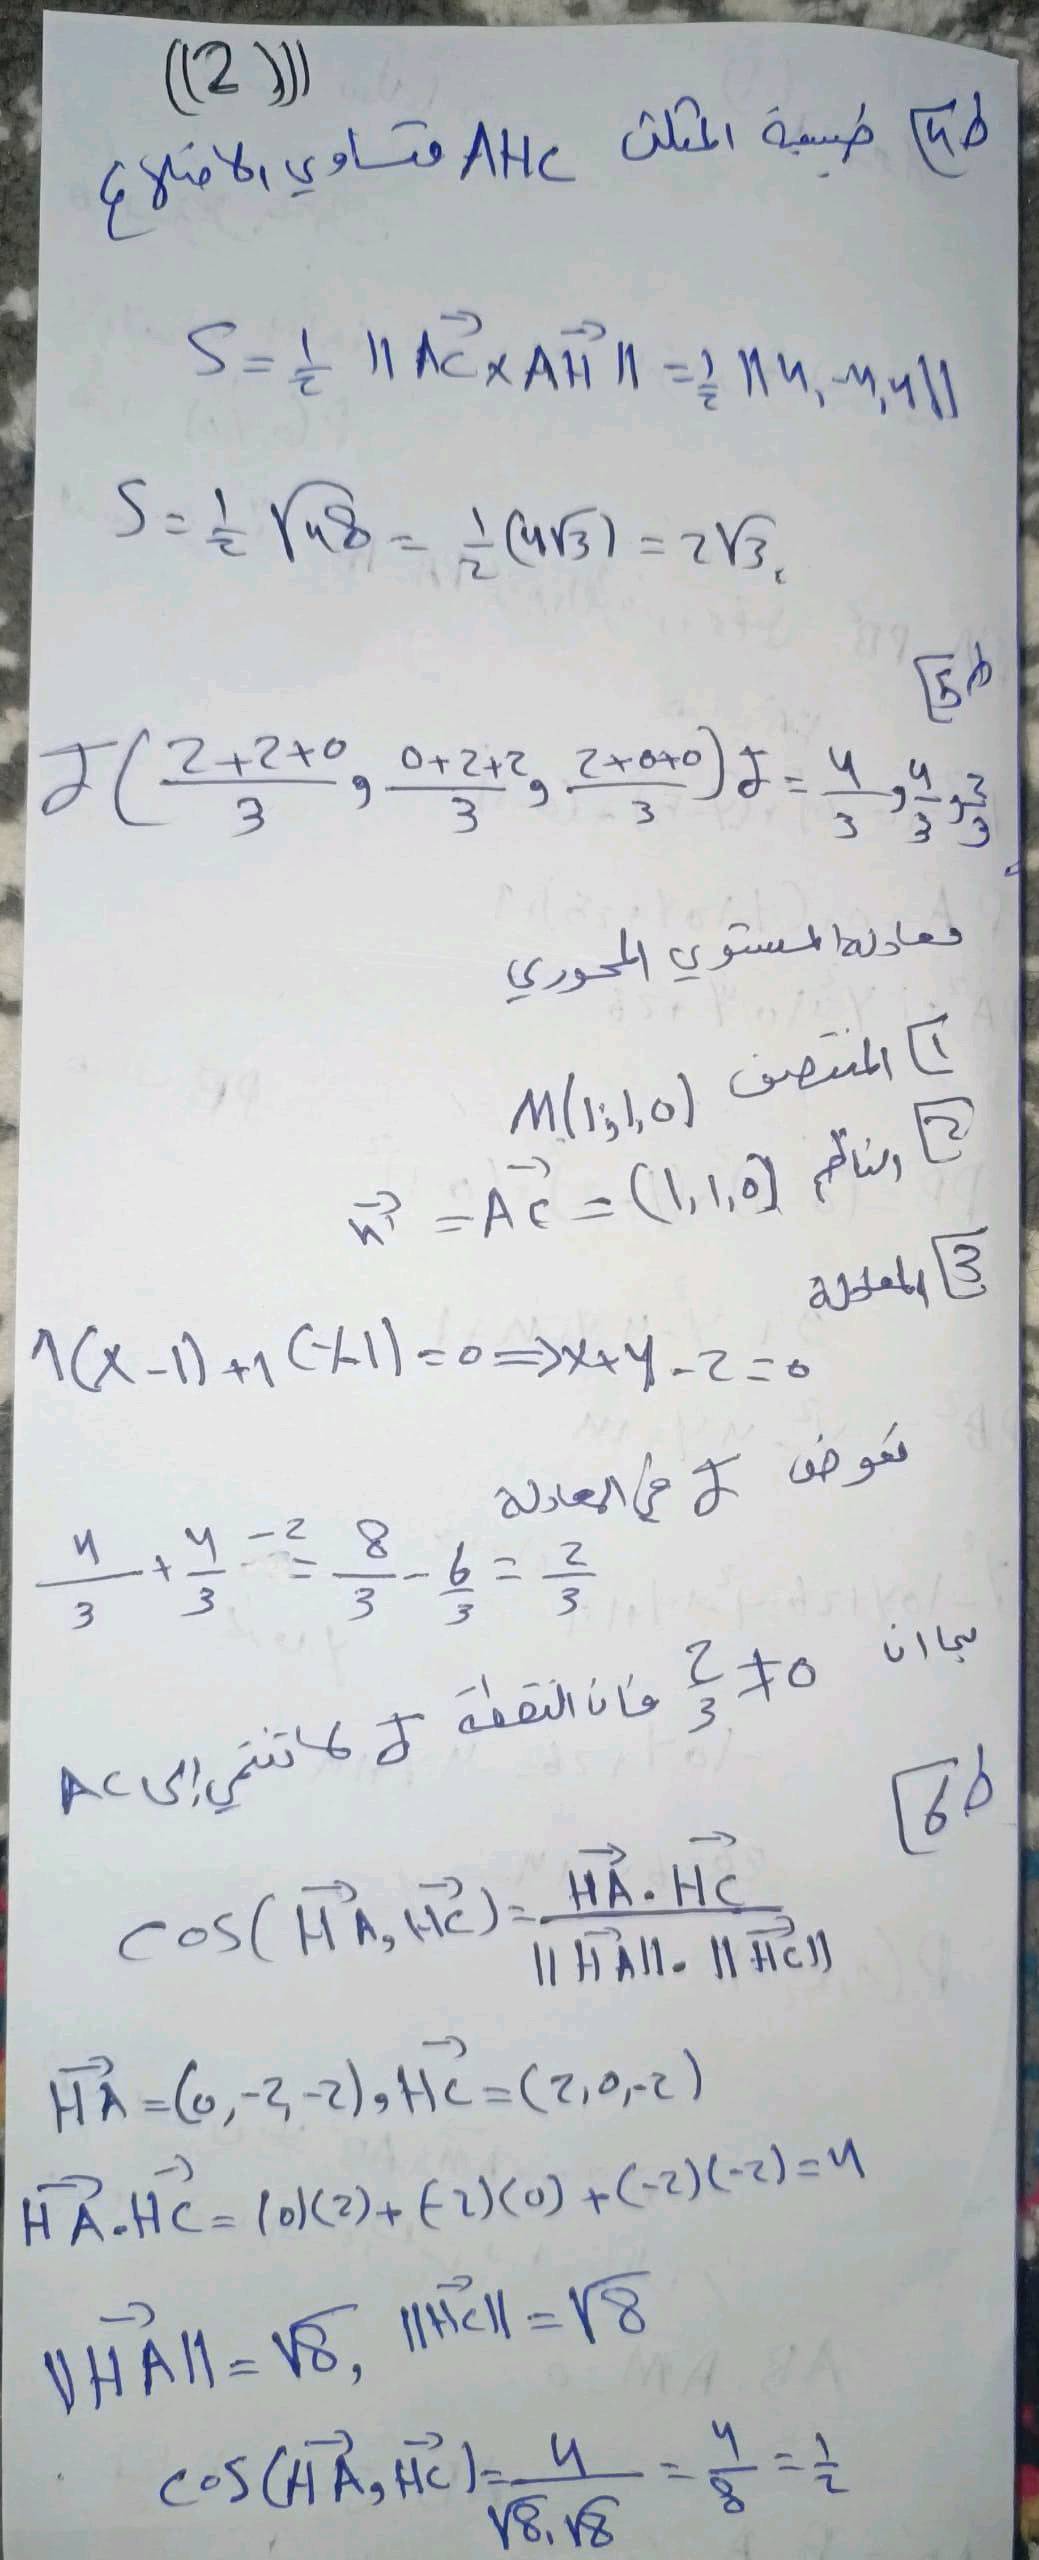 ((2))
ط4] طبيعة المثلث AHC متساوي الاضلاع
S = 1/2 ||AC→ x AH→|| = 1/2 ||4, -4, 4||
S = 1/2 √48 = 1/2 (4√3) = 2√3
ط5]
J( (2+2+0)/3 , (0+2+2)/3 , (2+0+0)/3 ) J = 4/3 , 4/3 , 2/3
معادلة المستوي المحوري
1] المنتصف M(1,1,0)
2] الناظم n→ = AC→ = (1,1,0)
3] المعادلة
1(x-1)+1(y-1)=0 => x+y-2=0
نعوض J في المعادلة
4/3 + 4/3 -2 = 8/3 - 6/3 = 2/3
بما ان 2/3 ≠ 0 فان النقطة J لا تنتمي إلى AC
ط6]
cos(HA→, HC→) = HA→ . HC→ / ||HA→|| . ||HC→||
HA→ = (0,-2,-2) , HC→ = (2,0,-2)
HA→ . HC→ = (0)(2)+(-2)(0)+(-2)(-2)=4
||HA→|| = √8, ||HC→|| = √8
cos(HA→, HC→) = 4/√8.√8 = 4/8 = 1/2